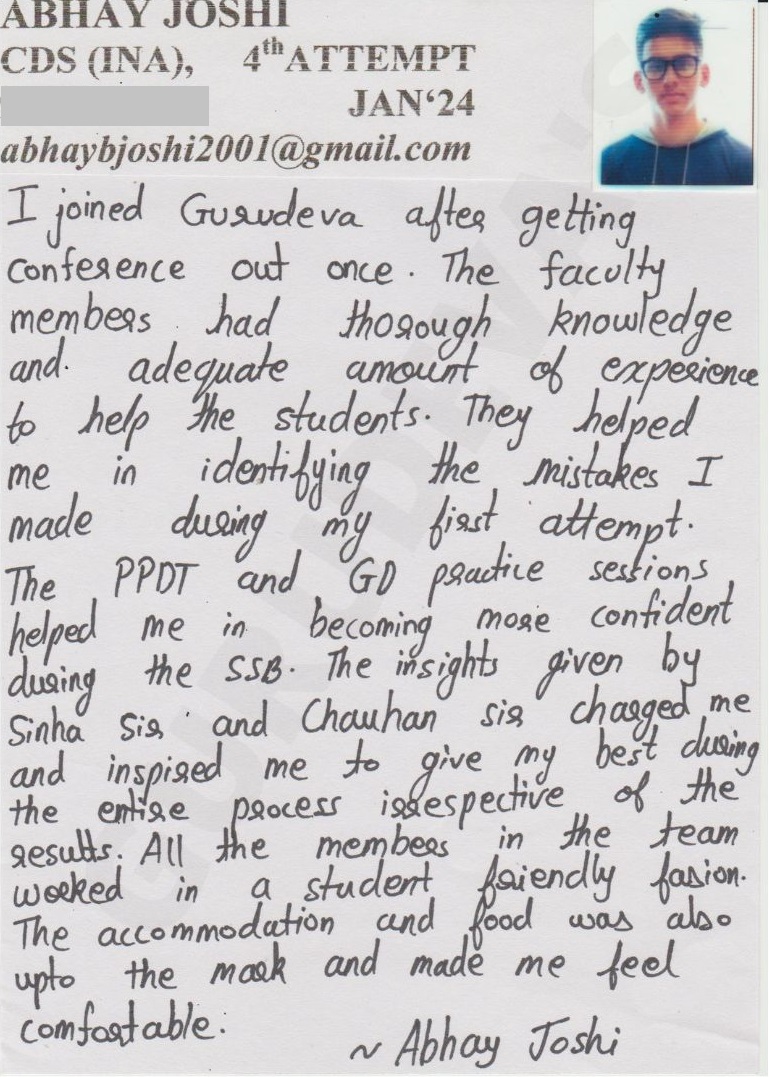 ABHAY JOSHI
CDS (INA), 4th ATTEMPT
JAN‘24
abhaybjoshi2001@gmail.com
I joined Gurudeva after getting
conference out once. The faculty
members had thorough knowledge
and adequate amount of experience
to help the students. They helped
me in identifying the mistakes I
made during my first attempt.
The PPDT and GD practice sessions
helped me in becoming more confident
during the SSB. The insights given by
Sinha Sir and Chauhan sir charged me
and inspired me to give my best during
the entire process irrespective of the
results. All the members in the team
worked in a student friendly fasion.
The accommodation and food was also
upto the mark and made me feel
comfortable.
~ Abhay Joshi